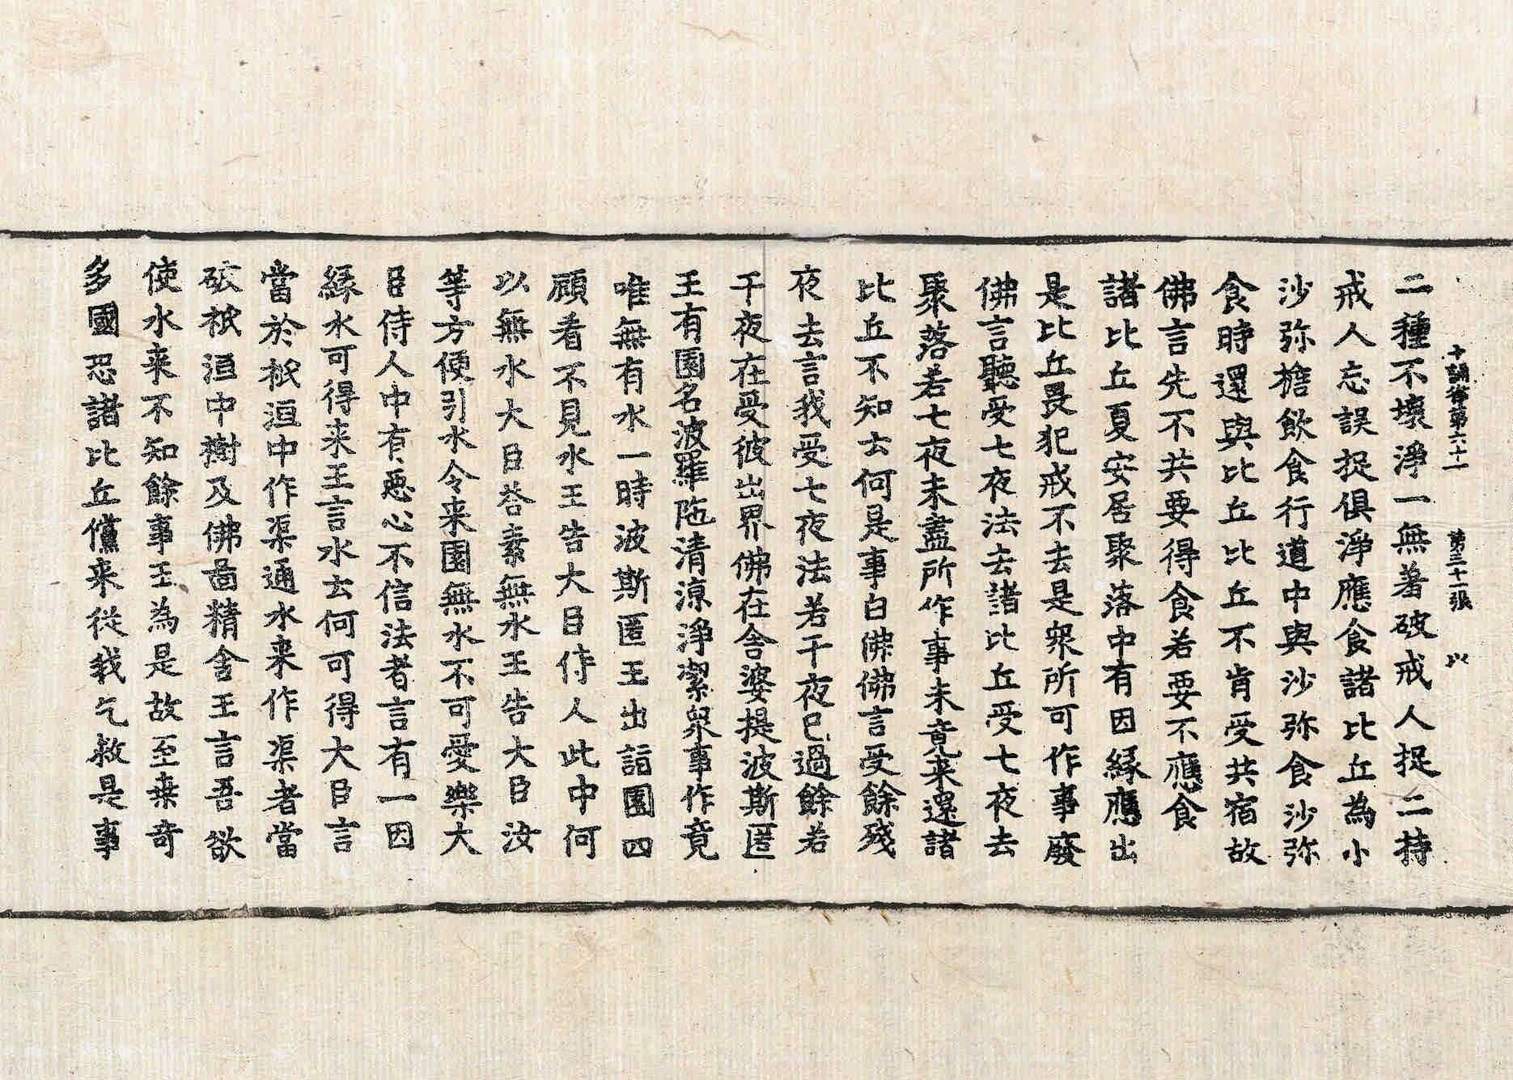 十誦律第六十一 第三十一張 以
二種不壞淨一無著破戒人捉二持
戒人忘誤捉俱淨應食諸比丘為小
沙弥檐飲食行道中與沙弥食沙弥
食時還與比丘比丘不肯受共宿故
佛言先不共要得食若要不應食
諸比丘夏安居聚落中有因緣應出
是比丘畏犯戒不去是眾所可作事廢
佛言聽受七夜法去諸比丘受七夜去
聚落若七夜未盡所作事未竟来還諸
比丘不知云何是事白佛佛言受餘殘
夜去言我受七夜法若干夜已過餘若
干夜在受彼出界佛在舍婆提波斯匿
王有園名波羅陁清涼淨潔眾事作竟
唯無有水一時波斯匿王出詣園四
顧看不見水王告大臣侍人此中何
以無水大臣荅素無水王告大臣汝
等方便引水令来園無水不可愛樂大
臣侍人中有惡心不信法者言有一因
緣水可得来王言水云何可得大臣言
當於祇洹中作渠通水来作渠者當
破祇洹中樹及佛啚精舍王言吾欲
使水来不知餘事王為是故至乗奇
多國恐諸比丘儻来從我乞救是事